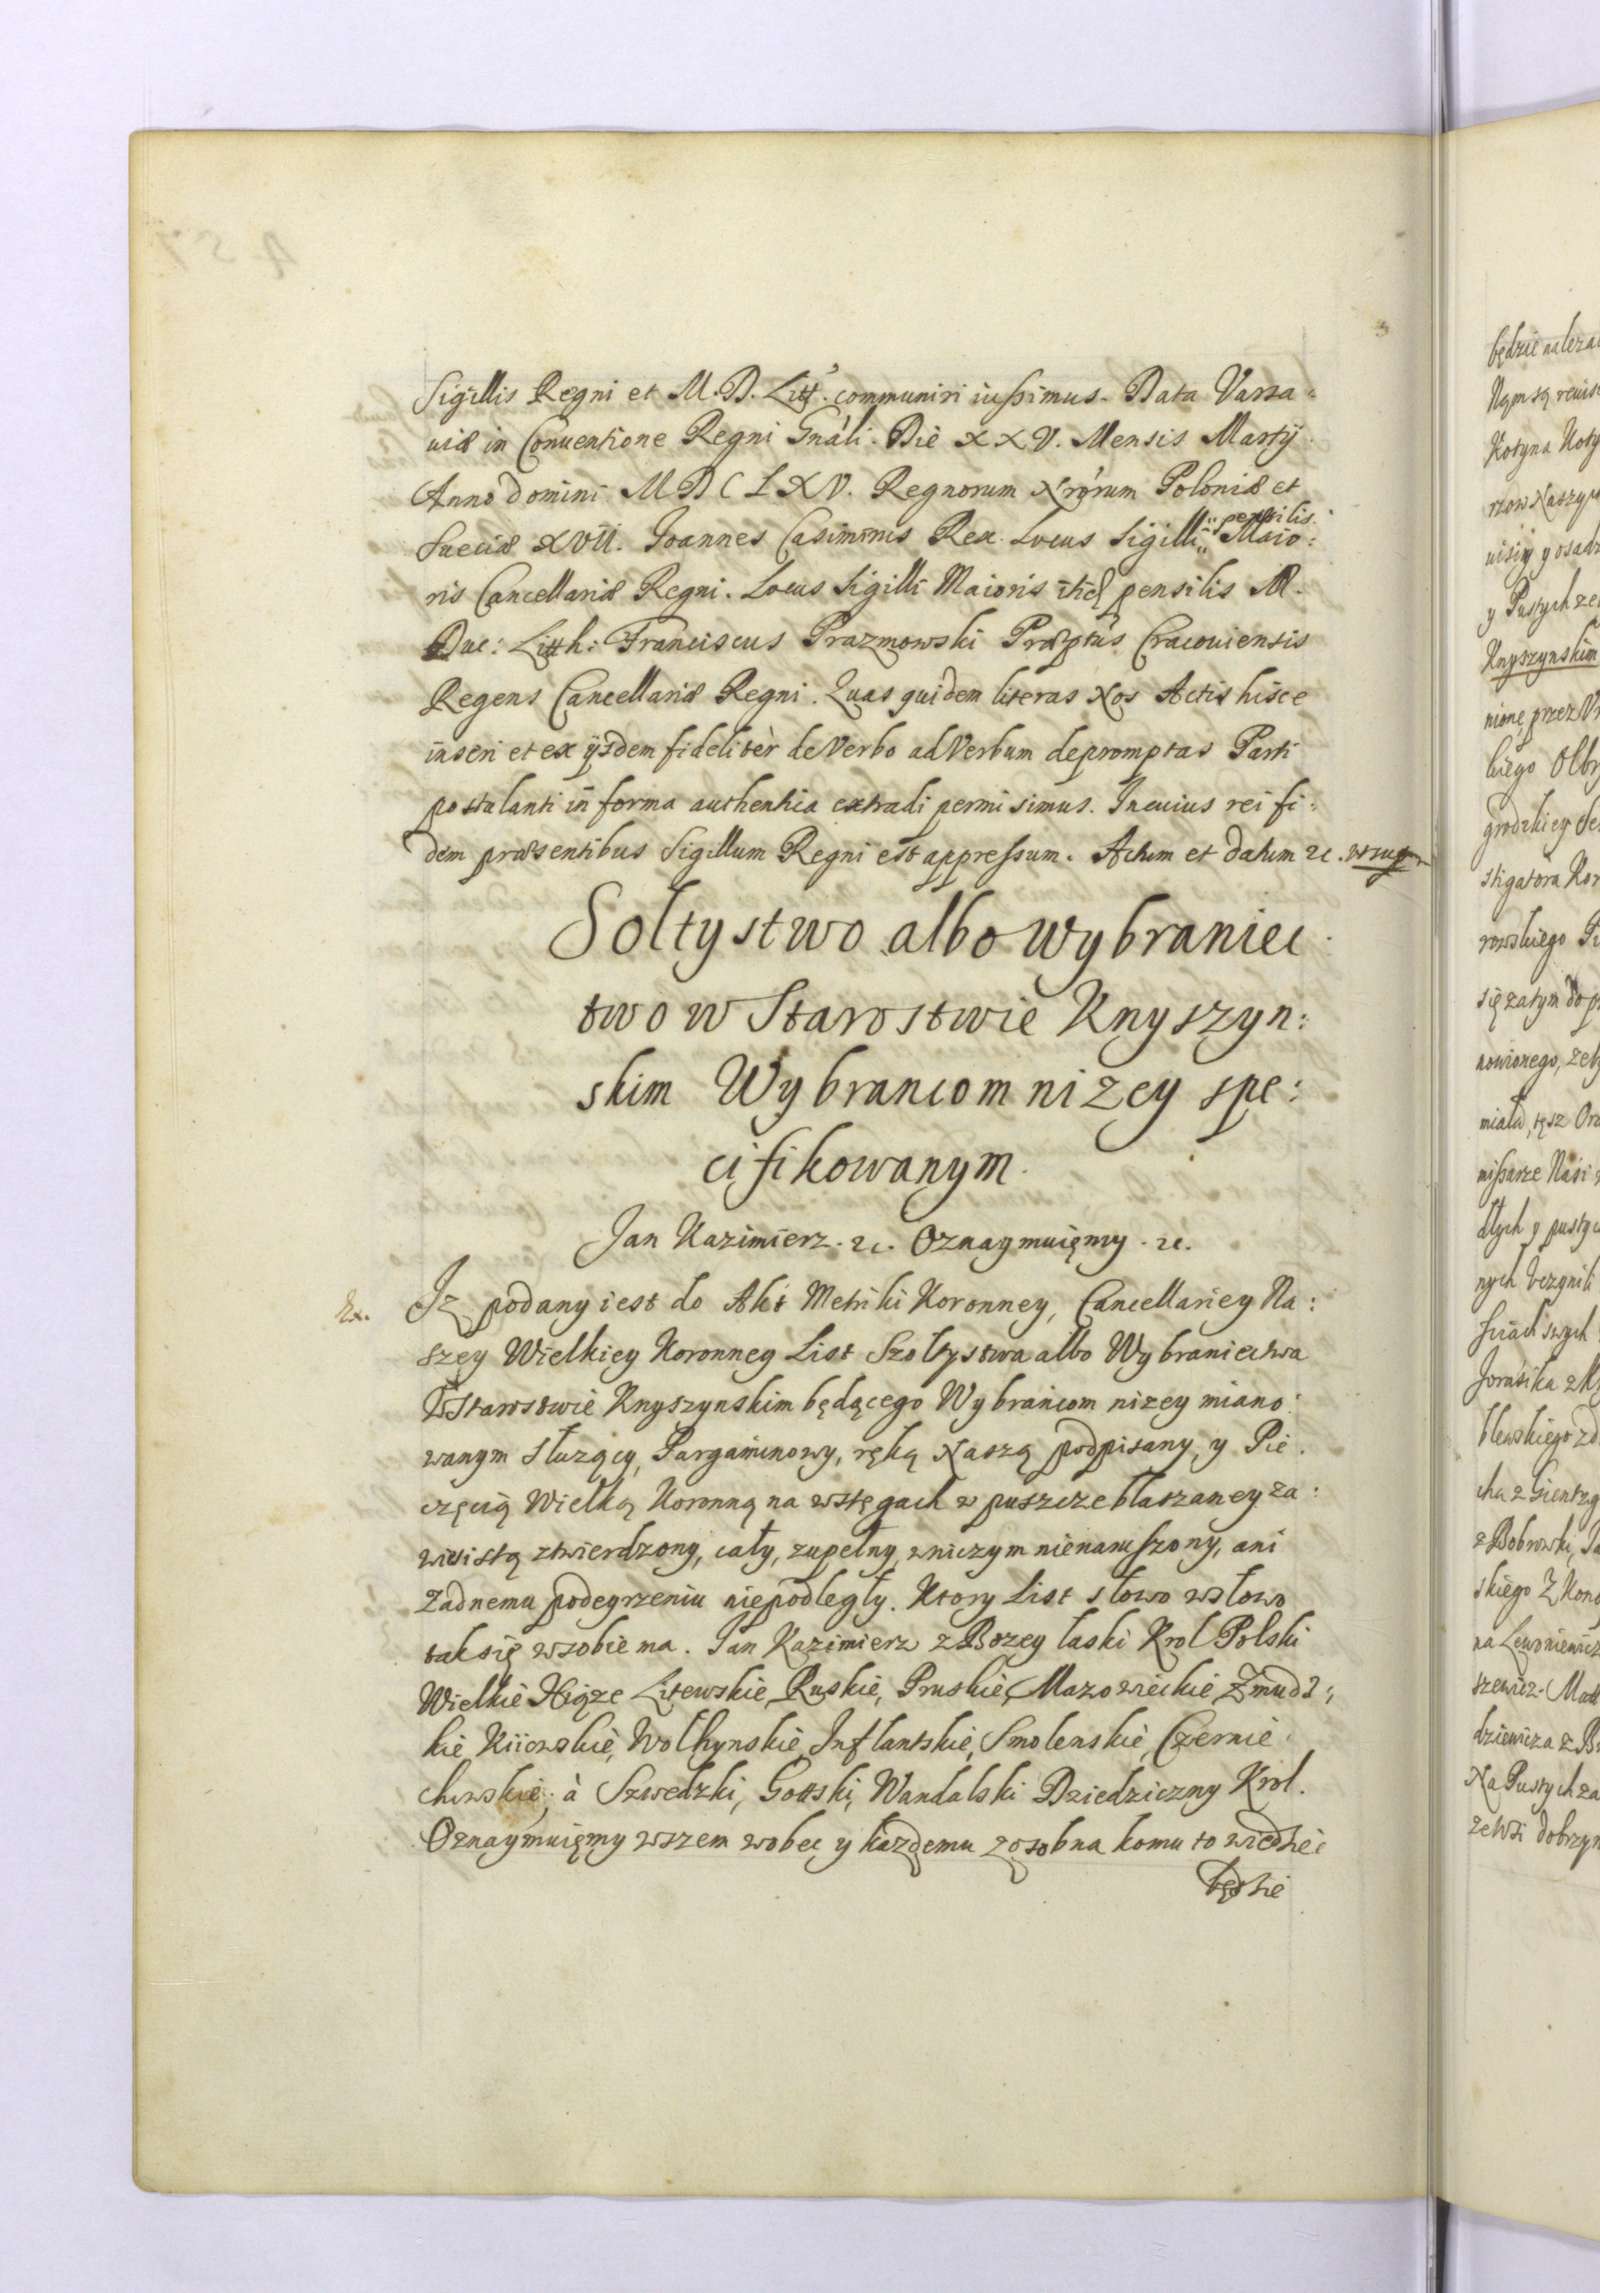 Sigillis Regni et M. D. Litt. communiri iussimus. Data Varsa-
uiæ in Conuentione Regni Gnáli. Die XXV. Mensis Martÿ
Anno domini MDCLXV. Regnorum Nrórum Poloniæ et
Sueciæ XVII. Joannes Casimirus Rex. Locus Sigilli pensilis Maio:
ris Cancellariæ Regni. Locus Sigilli Maioris pensilis M.
Duc: Litth: Franciscus Prazmowski Præptús Cracouiensis
Regens Cancellariæ Regni. Quas quidem literas Nos Actis hisce
inseri et ex ijsdem fidelitèr de Verbo ad Verbum depromptas Parti
postulanti in forma authentica extradi permisimus. In cuius rei fi:
dem præsentibus Sigillum Regni est appressum. Actum et datum zc. vt supr
Soltystwo albo wybraniec
two w Starostwie Knyszyn:
skim Wybrancom nizey spe:
cifikowanym.
Jan Kazimierz. zc. Oznaymuięmy. zc.
Ex. Jz podany iest do Akt Metriki Koronney, Cancellariey Na:
szey Wielkiey Koronney List Szoltystwa albo Wybraniectwa
W Starostwie Knyszynskim będącego Wybrancom nizey miano:
wanym służący, Pargaminowy, ręką Naszą podpisany, y Pie
częcią Wielką Koronną na wstęgach w puszcze blaszaney za:
wiesistą ztwierdzony, cały, zupełny, wniczym nienaruszony, ani
Zadnemu podeyrzeniu niepodległy. Ktory List słowo wsłowo
tak się wsobie ma. Jan Kazimierz z Bozey łaski Krol Polski
Wielkie Xiąze Litewskie, Ruskie, Pruskie, Mazowieckie, Zmudz:
kie Kiiowskie, Wolhynskie, Inflantskie, Smolenskie, Czernie
chowskie, à Szwedzki, Gottski, Wandalski Dziedziczny Krol.
Oznaymuięmy wszem wobec y kazdemu zosobna komu to wiedzieć
będzie
będzie nalezać
Kotyna
y Pustych
Knyszynskim
nionę przez
grodzkiey
stigatora Kor
rowskiego
się zatym do
nowionego, ze
dłych y pusty
nych vczynili
z Bobrowki,
skiego Z
dziewicza z
Na Pustych za
ze Wsi dobrzyn